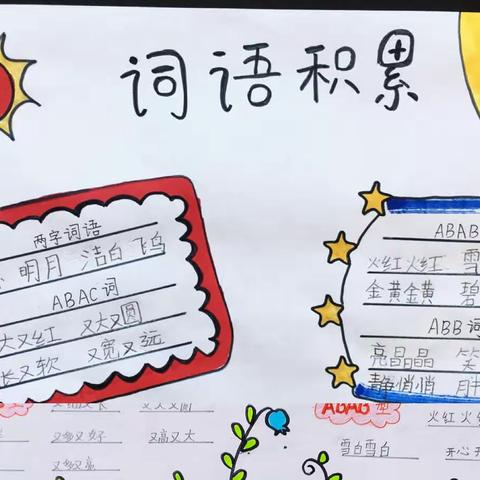 词语积累
两字词语
明月 洁白 飞鸟
ABAC词
大又红 又大又圆
长又软 又宽又远
ABAB
火红火红 雪
金黄金黄 碧
ABB词
亮晶晶 笑
静悄悄 胖
ABAB型
又多又好 又高又大
火红火
雪白雪白 开心开